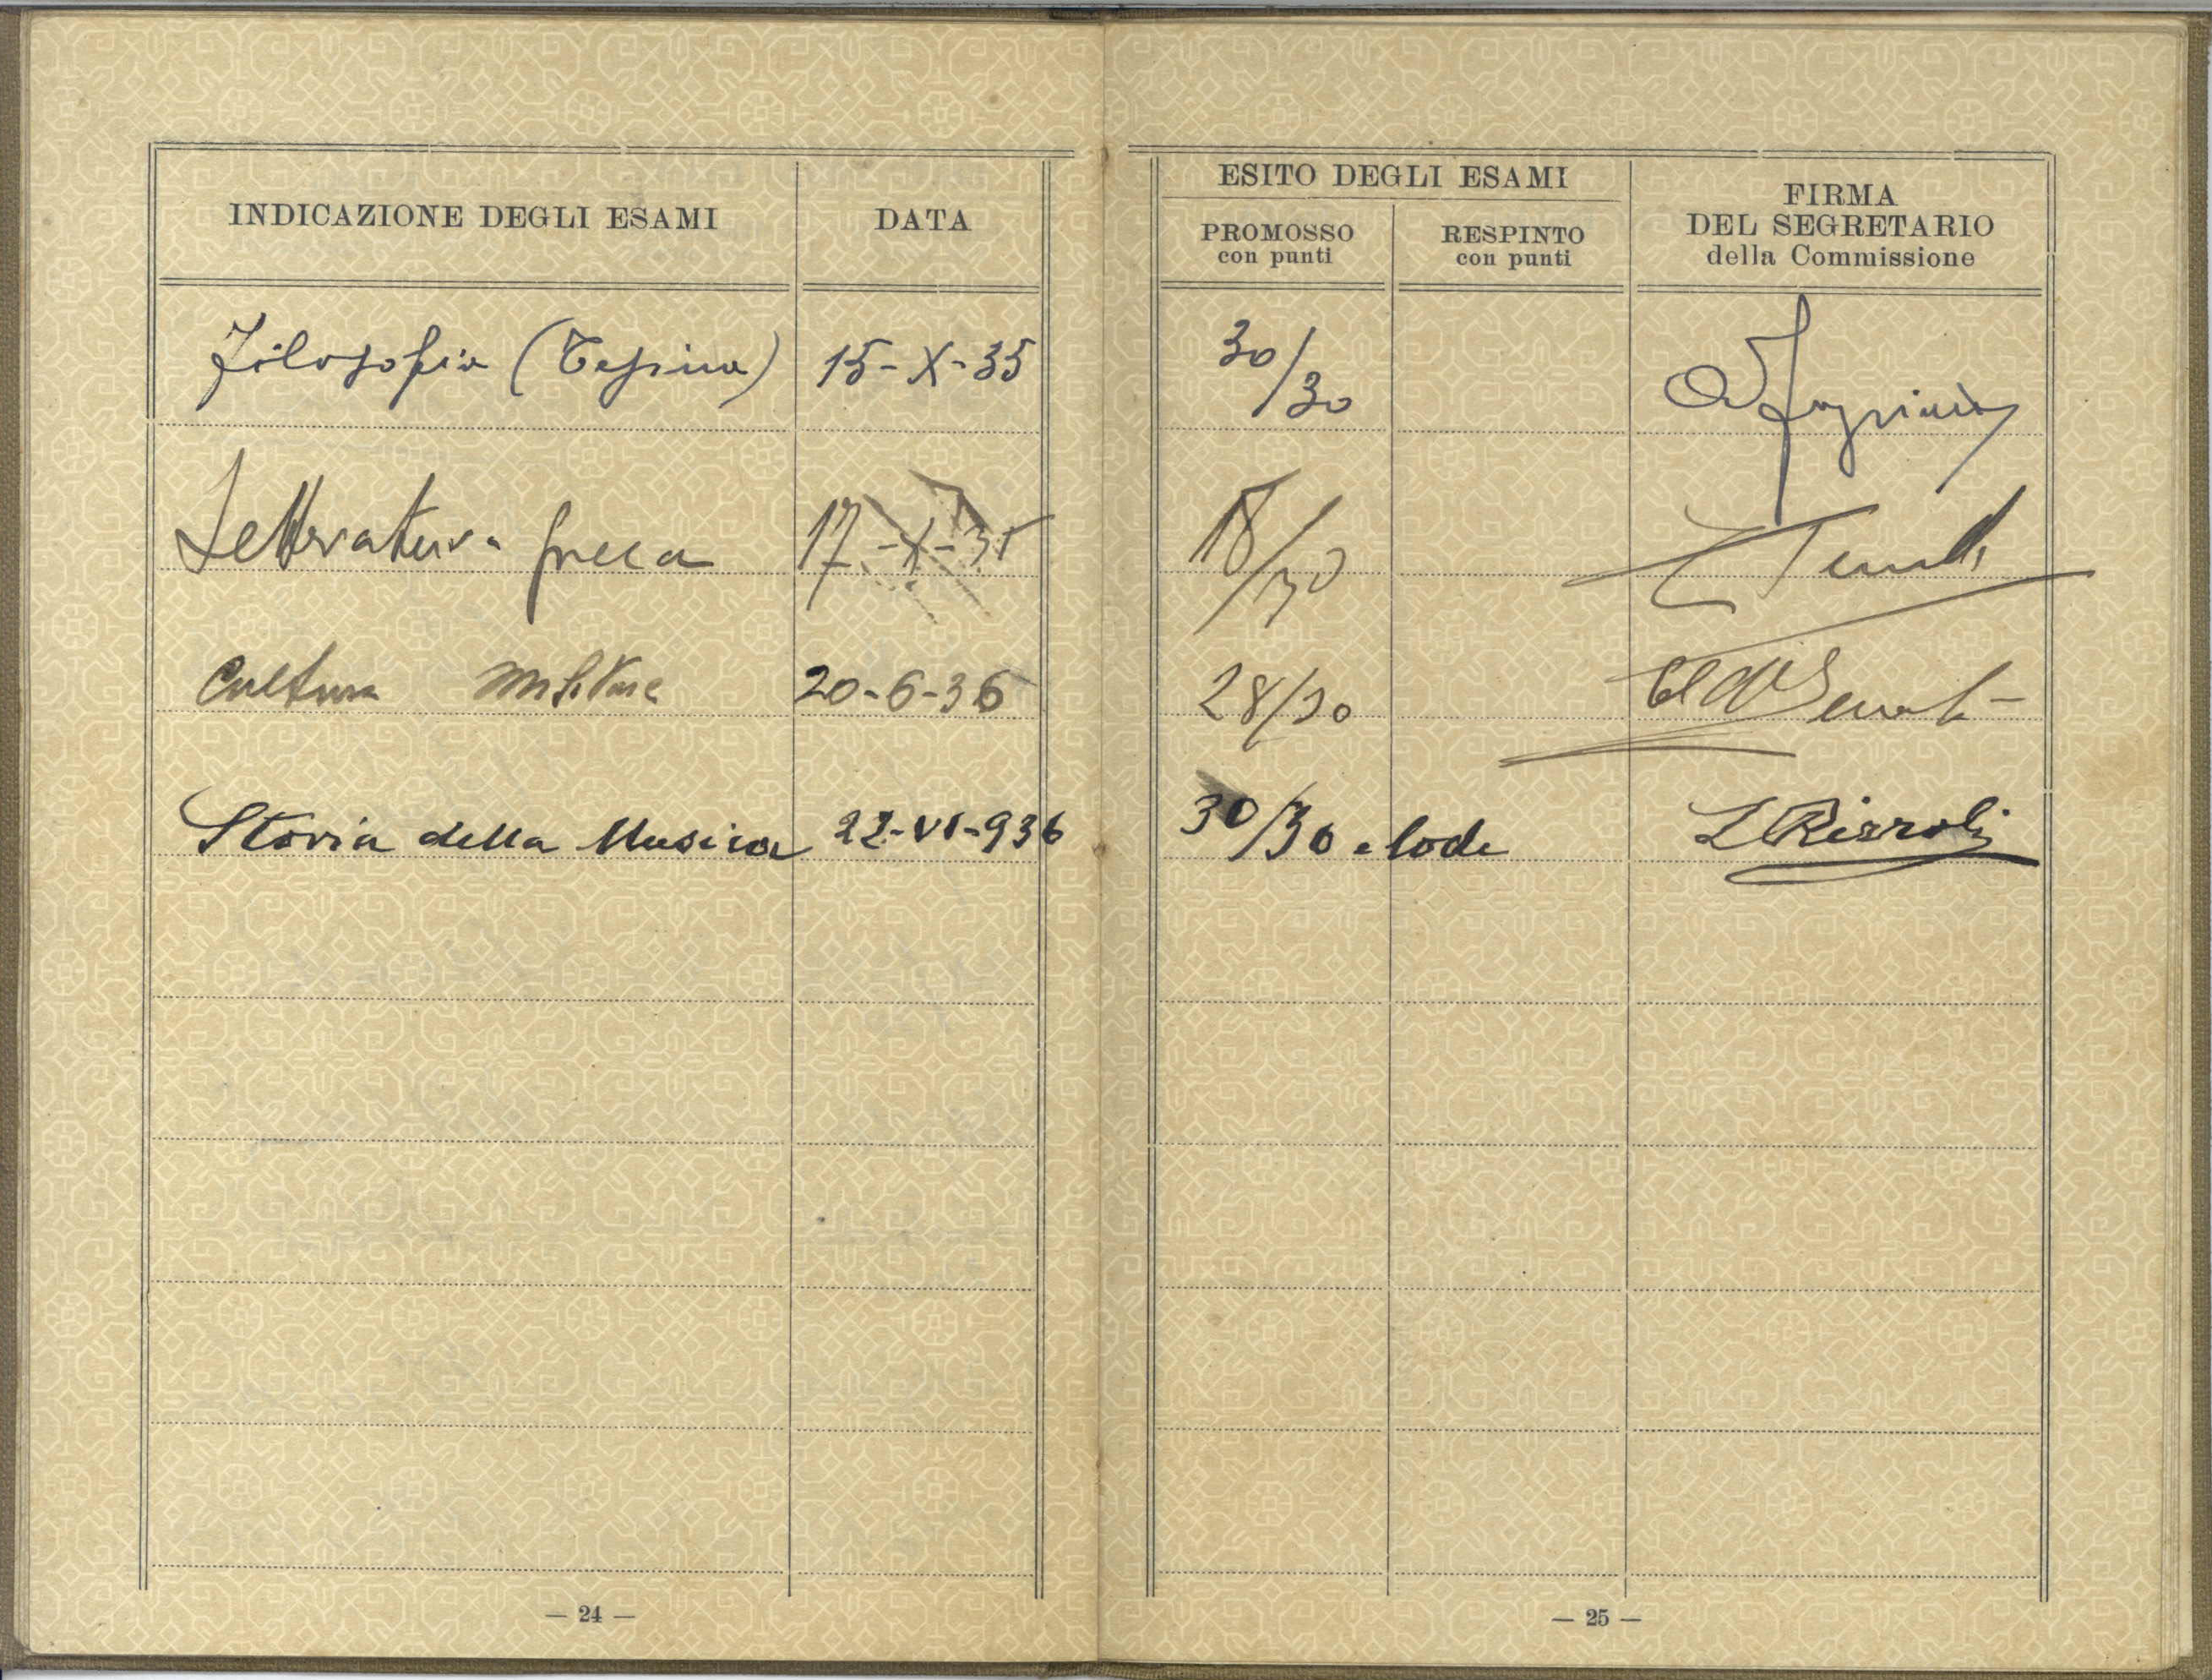 INDICAZIONE DEGLI ESAMI DATA
ESITO DEGLI ESAMI
PROMOSSO con punti
RESPINTO con punti
FIRMA
DEL SEGRETARIO
della Commissione
Filosofia (Tesina) 15-X-35 30/30
Letteratura greca 17-X-35 18/30
Cultura militare 20-6-36 28/30
Storia della Musica 22-VI-936 30/30 e lode L Rizzoli
— 24 —
— 25 —